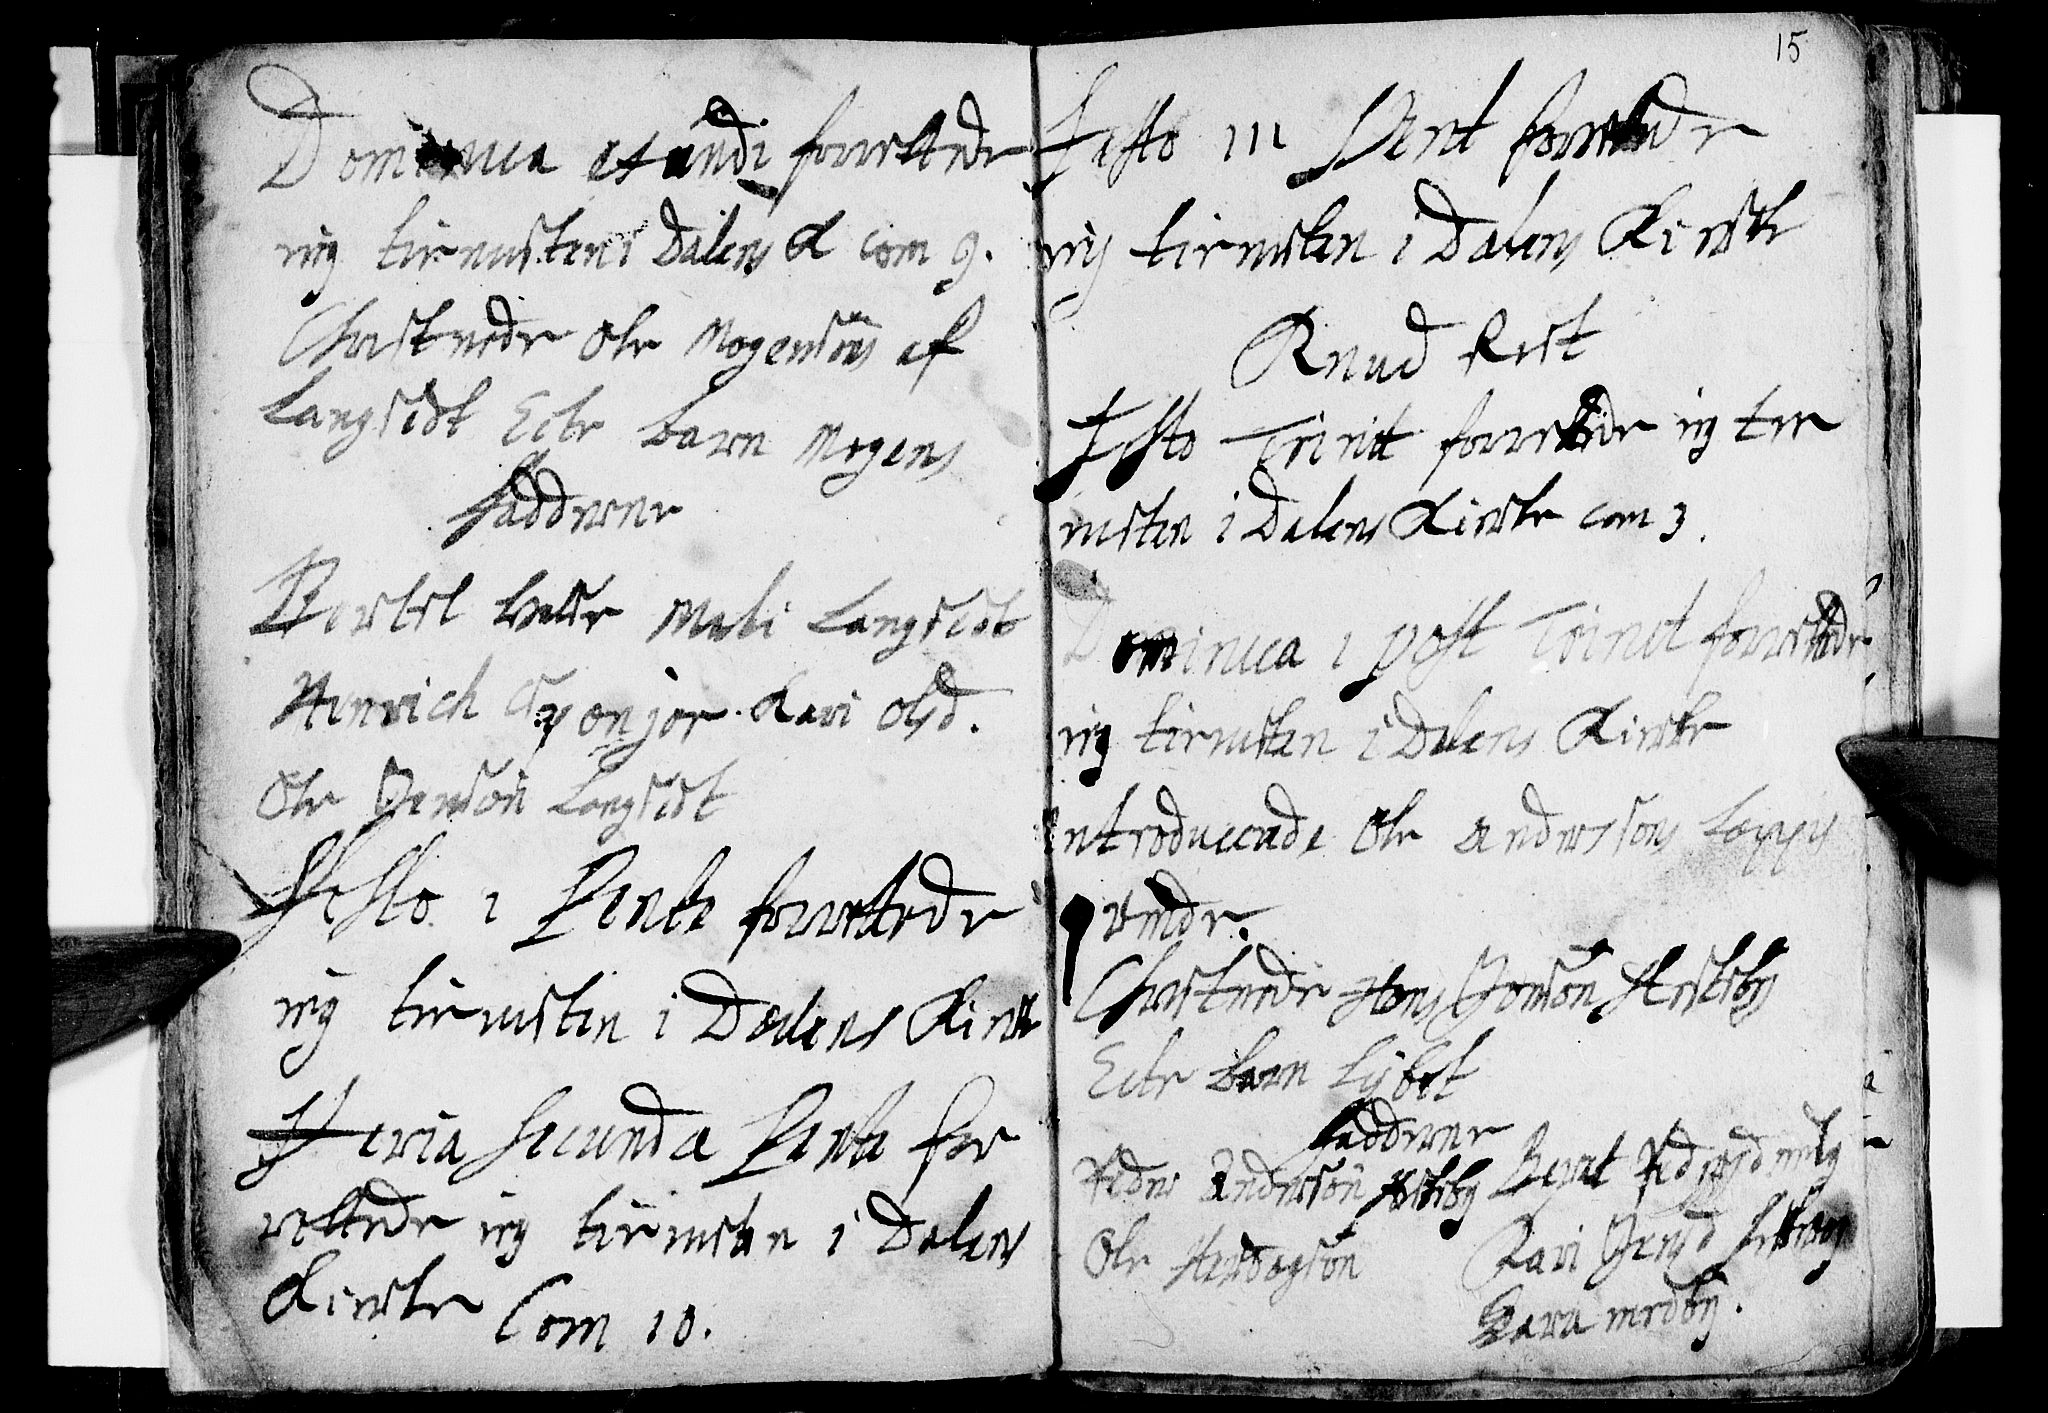 Dominica exaudi forrettede
ieg tienisten i Dalens K com 9.
Christnede Ole Mogensøns af
Langsedt Ecte barn Mogens
Faddrene
Bertel Mali Langsedt
Henrich Kari Olsd.
Ole Jensøn Langsedt
Festo 1 Pente forrettede
ieg tienisten i Dalens Kircke
Feria Secunda Pente for
rettede ieg tienisten i Dalens
Kircke Com 10.
15
Festo III Pent forrettede
ieg tienisten i Dalens Kircke
Knud Rest
Festo Trinit forrettede ieg tie
nisten i Dalens Kircke com 3.
Dominica 1 post Trinit forrettede
ieg tienisten i Dalens Kircke
introducerede Ole Andersøns
qvinde.
Christnede Hans Jonsøn
Ecte barn Lisbet
Faddrene
Peder Andersøn
Ole
Kari Jensd